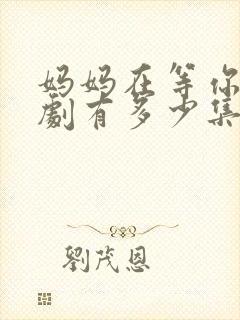 妈妈在等你
劇有多少集
劉茂恩